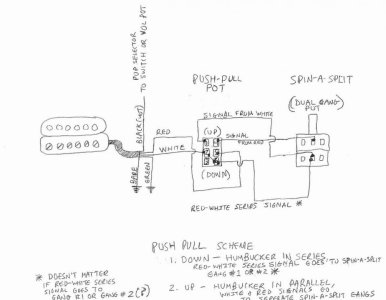 PUP SELECTOR
TO SWITCH OR VOL POT
BLACK (HOT)
PUSH-PULL
POT
SPIN-A-SPLIT
(DUAL GANG
POT)
SIGNAL FROM WHITE
RED
WHITE
(UP)
SIGNAL
FROM RED
(DOWN)
BARE
GREEN
RED-WHITE SERIES SIGNAL *
PUSH PULL SCHEME
1. DOWN - HUMBUCKER IN SERIES
RED-WHITE SERIES SIGNAL GOES TO SPIN-A-SPLIT
GANG #1 OR #2 *
* DOESN'T MATTER
IF RED-WHITE SERIES
SIGNAL GOES TO
GANG #1 OR GANG #2 (?)
2. UP - HUMBUCKER IN PARALLEL,
WHITE & RED SIGNALS GO
TO SEPERATE SPIN-A-SPLIT GANGS